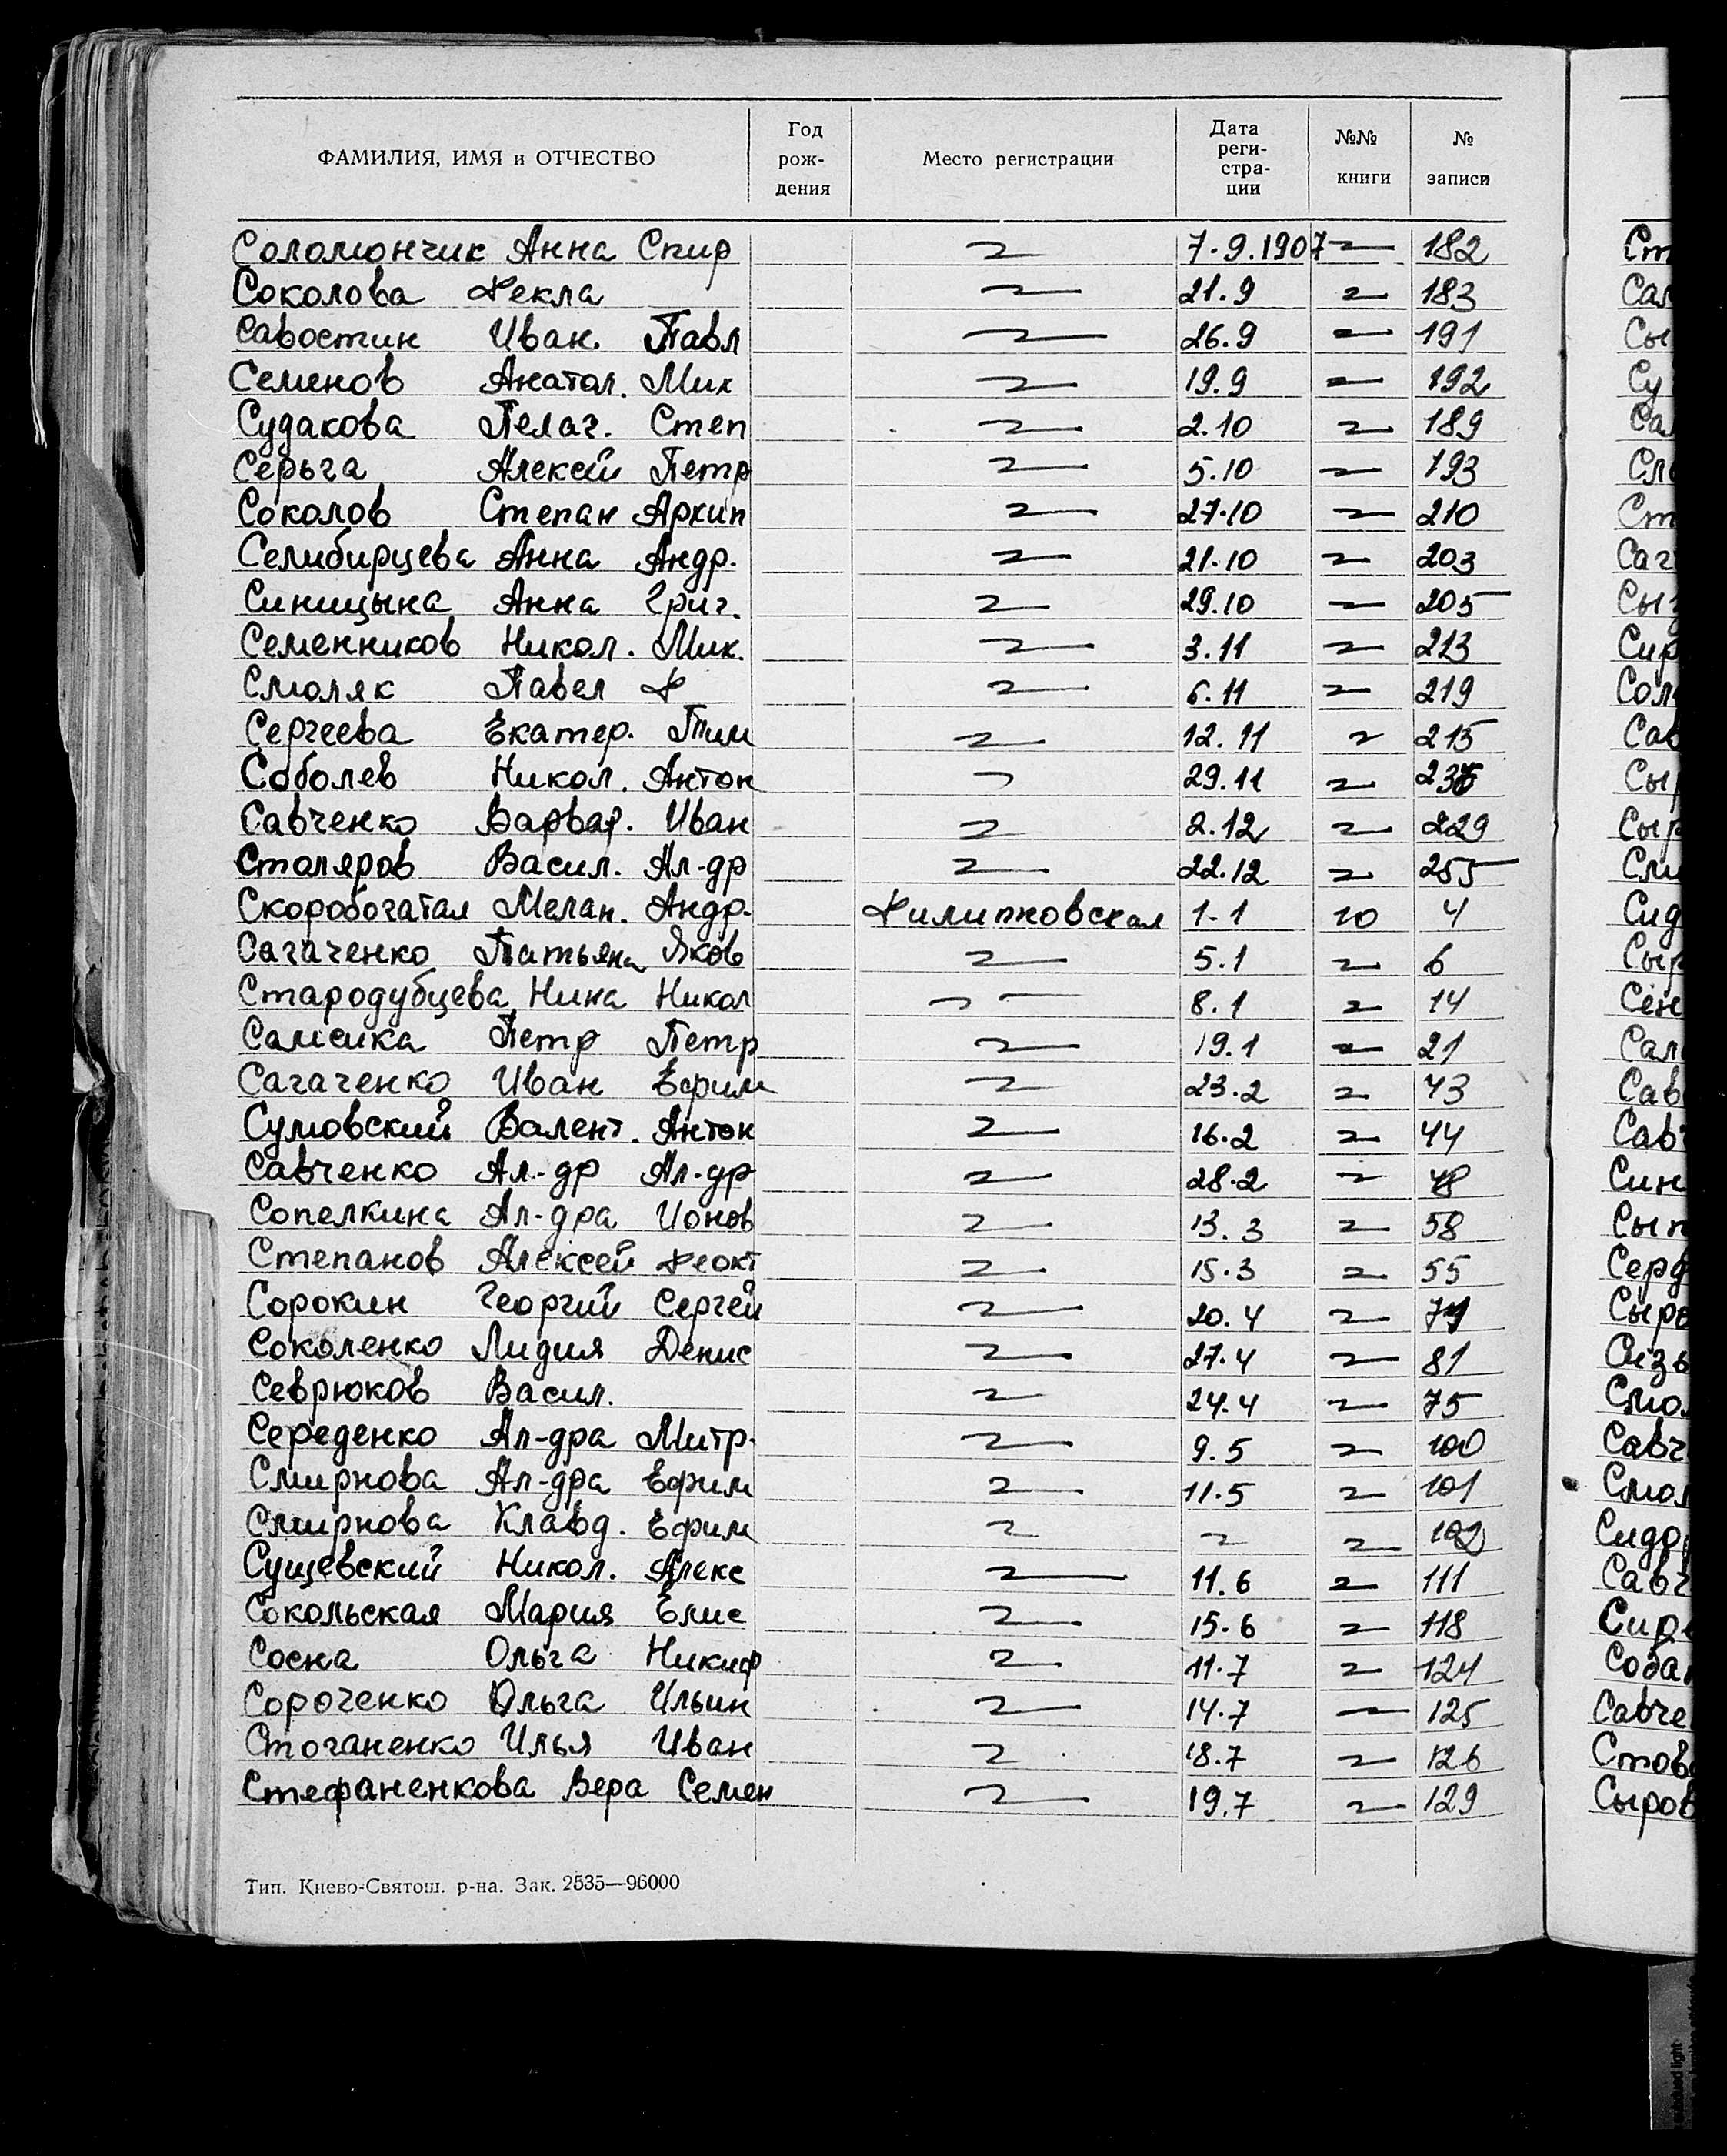 ФАМИЛИЯ, ИМЯ и ОТЧЕСТВО Год рож- дения Место регистрации Дата реги- стра- ции №№ книги № записи
Соломончик Анна Спир 〃 7.9.1907 〃 182
Соколова Фекла 〃 21.9 〃 183
Савостин Иван Павл 〃 26.9 〃 191
Семенов Анатол. Мих 〃 19.9 〃 192
Судакова Пелаг. Степ 〃 2.10 〃 189
Серьга Алексей Петр 〃 5.10 〃 193
Соколов Степан Архип 〃 27.10 〃 210
Селибирцева Анна Андр. 〃 21.10 〃 203
Синицына Анна Григ. 〃 29.10 〃 205
Семенников Никол. Мих. 〃 3.11 〃 213
Смоляк Павел Ф 〃 6.11 〃 219
Сергеева Екатер. Тим 〃 12.11 〃 215
Соболев Никол. Антон 〃 29.11 〃
Савченко Варвар. Иван 〃 2.12 〃 229
Столяров Васил. Ал-др 〃 22.12 〃 255
Скоробогатая Мелан. Андр. Филипповская 1-1 10 4
Сагаченко Татьяна Яков 〃 5.1 〃 6
Стародубцева Нина Никол 〃 8.1 〃 14
Самсика Петр Петр 〃 19.1 〃 21
Сагаченко Иван Ефим 〃 23.2 〃 43
Сумовский Валент. Антон 〃 16.2 〃 44
Савченко Ал-др Ал-др 〃 28.2 〃 48
Сопелкина Ал-дра Ионов 〃 13.3 〃 58
Степанов Алексей Феокт 〃 15.3 〃 55
Сорокин Георгий Сергей 〃 20.4 〃
Соколенко Лидия Денис 〃 27.4 〃 81
Севрюков Васил. 〃 24.4 〃 75
Середенко Ал-дра Митр. 〃 9.5 〃 100
Смирнова Ал-дра Ефим 〃 11.5 〃 101
Смирнова Клавд. Ефим 〃 〃 〃 102
Сущевский Никол. Алекс 〃 11.6 〃 111
Сокольская Мария Елис 〃 15.6 〃 118
Сосна Ольга Никиф 〃 11.7 〃 124
Сороченко Ольга Ильин 〃 14.7 — 125
Стоганенко Илья Иван 〃 18.7 〃 126
Стефаненкова Вера Семен 〃 19.7 〃 129
Тип. Киево-Святош. р-на. Зак. 2535—96000